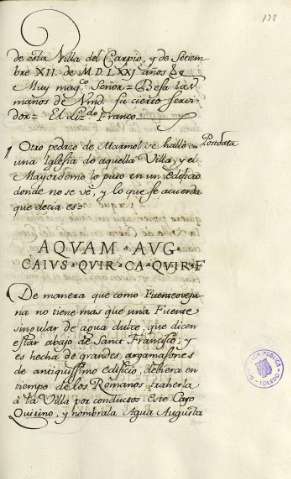 132
de esta Villa del Carpio, y de Setiem
bre XII. de M.D.LXXI años
Muy mag.co Señor = Besa las
manos de Vmd su cierto servi
dor = El liz.do Franco.
Otro pedaço de Marmol se hallo en
una Iglesia de aquella Villa, y el
Mayordomo lo puso en un edificio
donde no se vé, y lo que se acuerda
que decia es =
AQVAM · AVG ·
CAIVS · QVIR · CA · QVIR · F
De manera que como Fuenteoveju
na no tiene mas que una Fuente
singular de agua dulce, que dicen
estar abajo de Sanct Francisco, y
es hecha de grandes argamasones
de antiquissimo edificio, debiera en
tiempo de los Romanos traherla
à la Villa por conductos Este Cayo
Quirino, y nombrala Agua Augusta